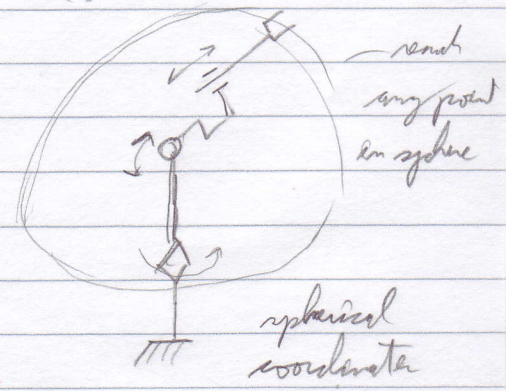 reach
any point
on sphere
spherical
coordinates